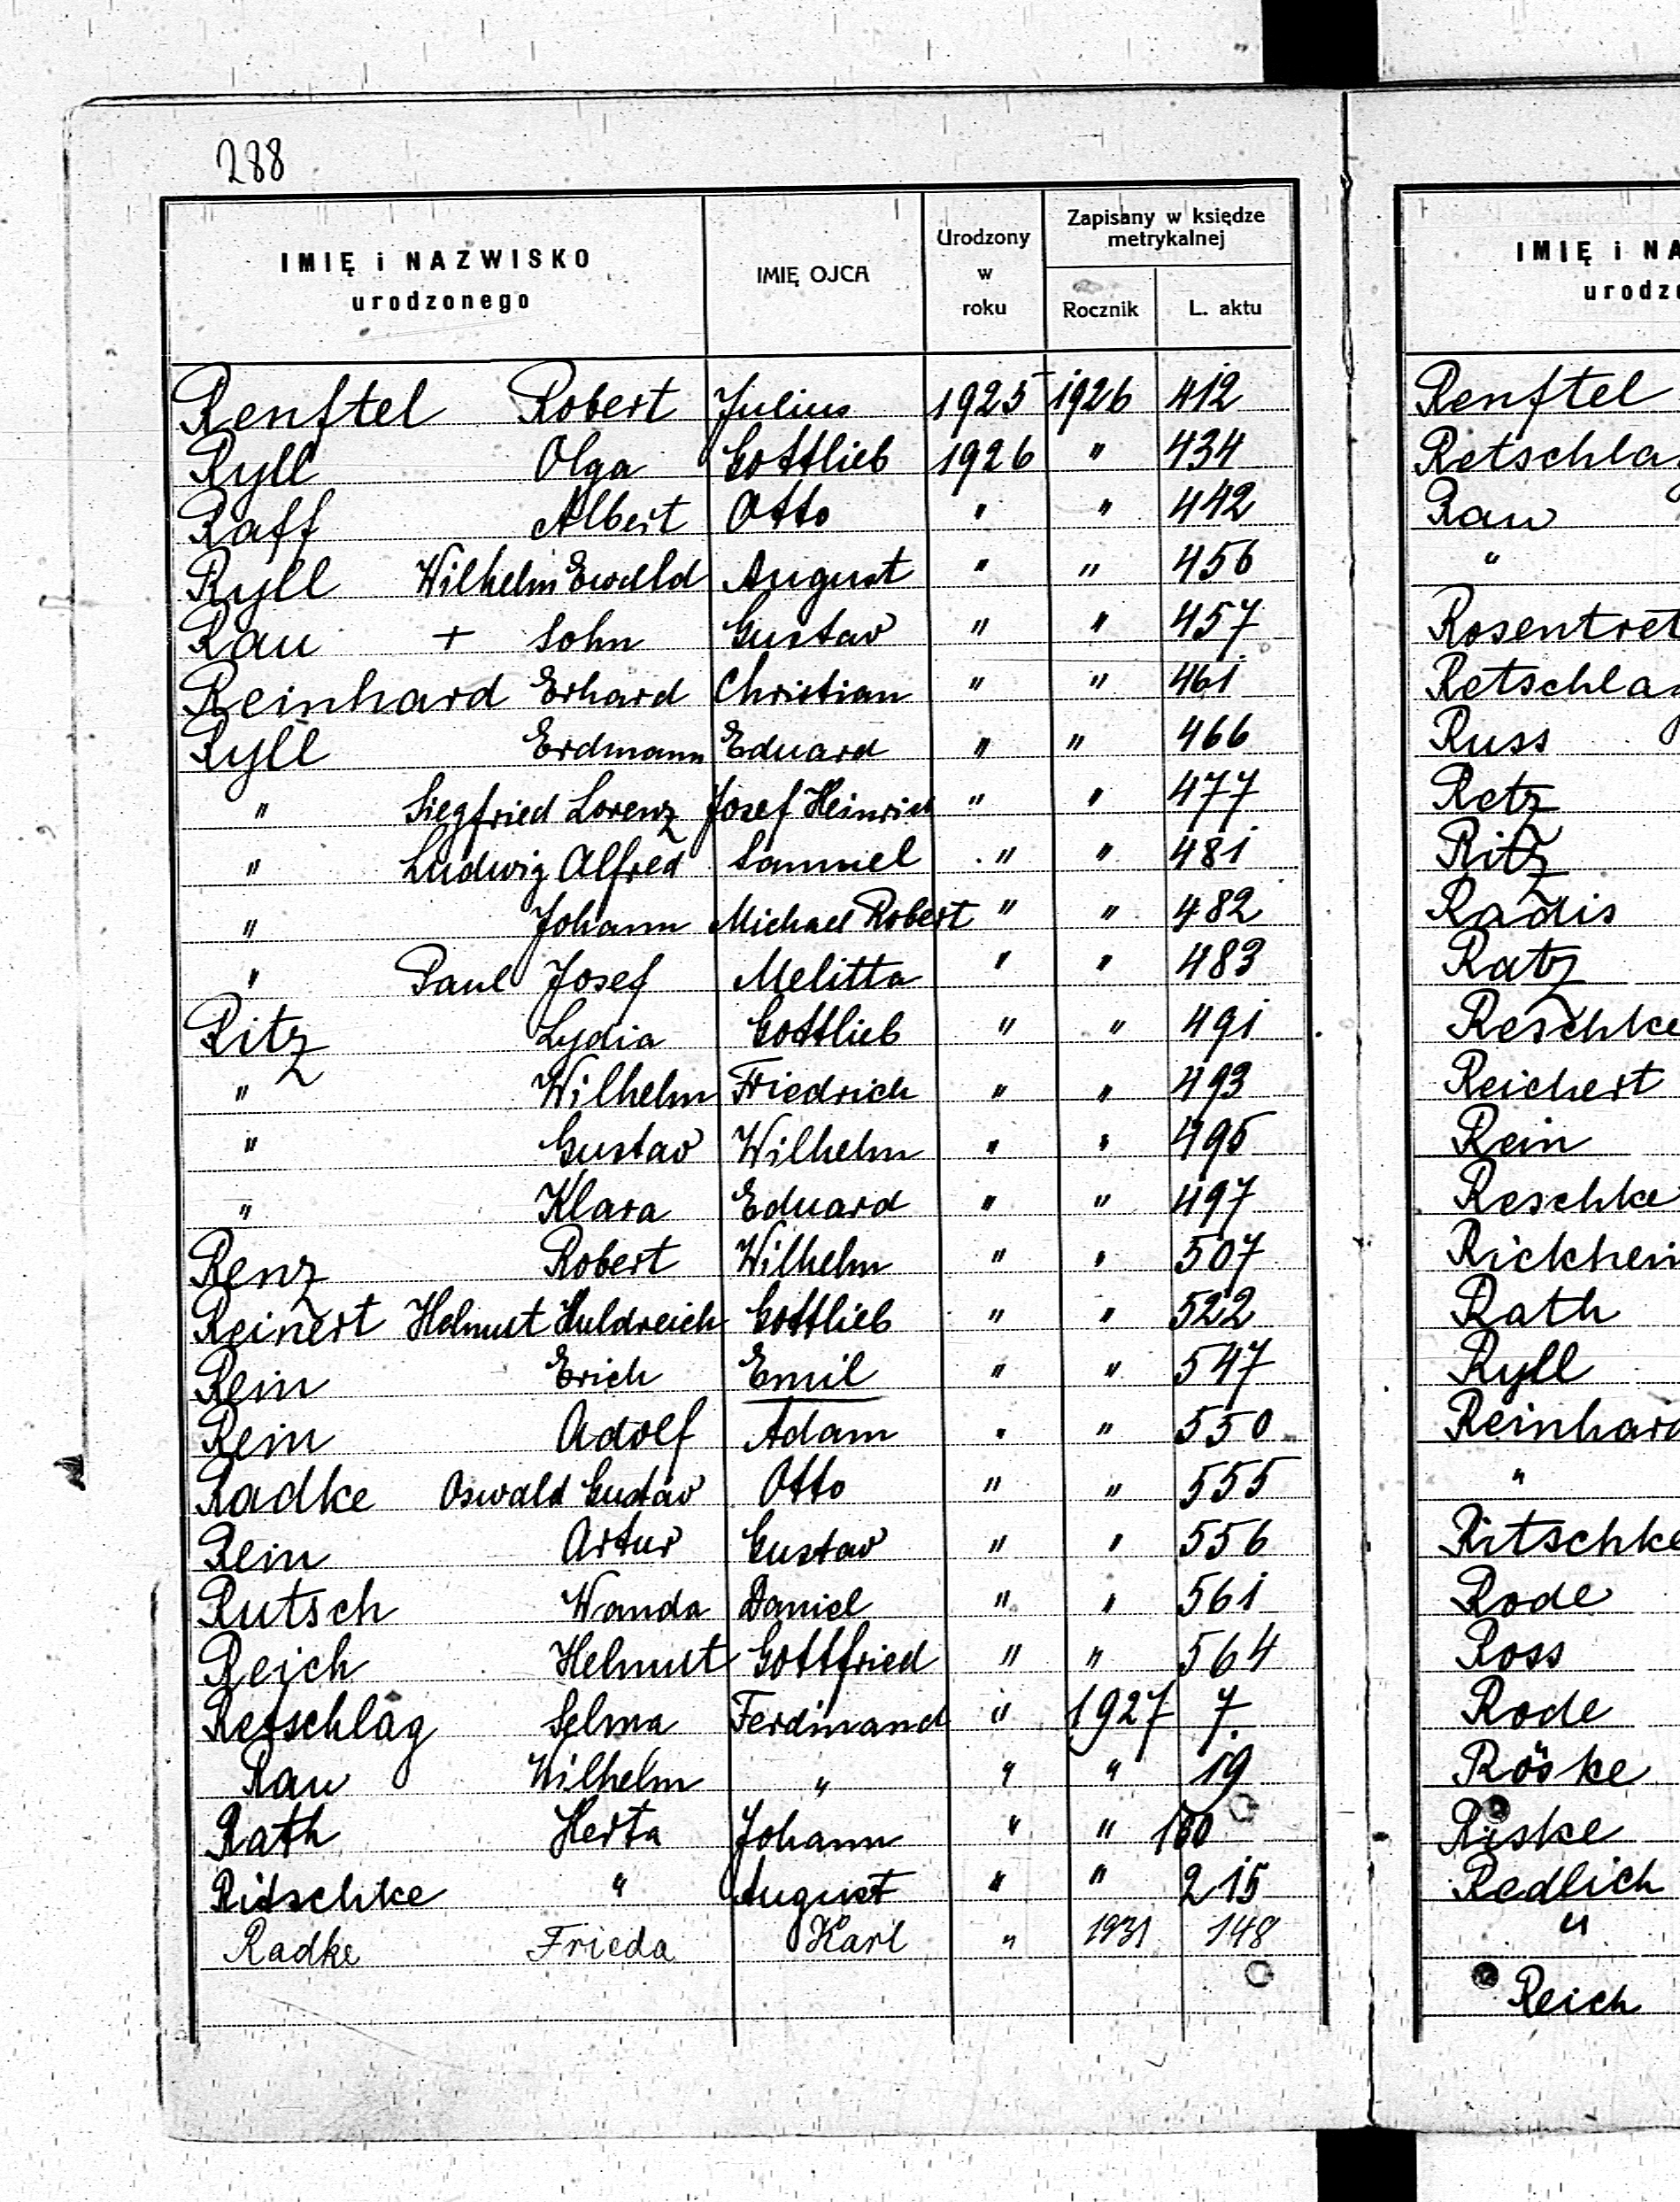 288
IMIĘ i NAZWISKO urodzonego IMIĘ OJCA Urodzony w roku Zapisany w księdze metrykalnej Rocznik L. aktu
Renftel Robert Julius 1925 1926 412
Ryll Olga Gottlieb 1926 " 434
Raff Albert Otto " " 442
Ryll Wilhelm Ewald August " " 456
Rau + Sohn Gustav " " 457
Reinhard Erhard Christian " " 461
Ryll Erdmann Eduard " " 466
" Siegfried Lorenz Josef Heinrich " " 477
" Ludwig Alfred Samuel " " 481
" Johann Michael Robert " " 482
" Paul Josef Melitta " " 483
Ritz Lydia Gottlieb " " 491
" Wilhelm Friedrich " " 493
" Gustav Wilhelm " " 495
" Klara Eduard " " 497
Renz Robert Wilhelm " " 507
Reinert Helmut Huldreich Gottlieb " " 522
Rein Erich Emil " " 547
Rein Adolf Adam " " 550
Radke Oswald Gustav Otto " " 555
Rein Artur Gustav " " 556
Rutsch Wanda Daniel " " 561
Reich Helmut Gottfried " " 564
Retschlag Selma Ferdinand " 1927 7.
Rau Wilhelm " " " 19
Rath Herta Johann " "
Ritschke " August " " 215
Radke Frieda Karl " 1931 148
IMIĘ i NA
urodzo
Renftel
Retschlag
Rau
"
Rosentret
Retschlag
Russ
Retz
Ritz
Radis
Ratz
Reschke
Reichert
Rein
Reschke
Rickhein
Rath
Ryll
Reinhard
"
Ritschke
Rode
Ross
Rode
Röske
Riske
Redlich
"
Reich